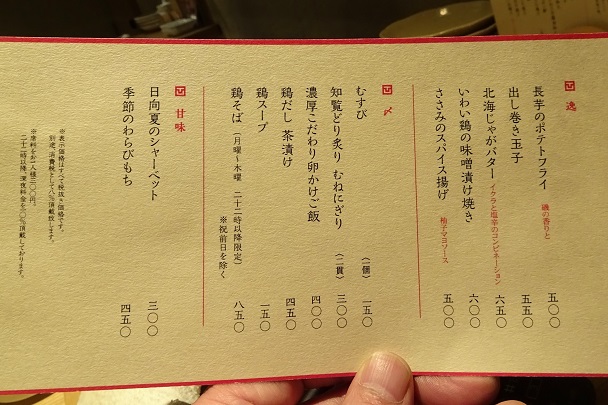 逸
長芋のポテトフライ 磯の香りと 五〇〇
出し巻き玉子 五五〇
北海じゃがバター イクラと塩辛のコンビネーション 六五〇
いわい鶏の味噌漬け焼き 六〇〇
ささみのスパイス揚げ 柚子マヨソース 五〇〇
〆
むすび 〈一個〉 一五〇
知覧どり炙り むねにぎり 〈二貫〉 三〇〇
濃厚こだわり卵かけご飯 四〇〇
鶏だし 茶漬け 四五〇
鶏スープ 一五〇
鶏そば (月曜〜木曜 二十二時以降限定) 八五〇
※祝前日を除く
甘味
日向夏のシャーベット 三〇〇
季節のわらびもち 四五〇
※表示価格はすべて税抜き価格です。
別途、消費税として八%頂戴致します。
※席料をお一人様三〇〇円。
二十二時以降、深夜料金を一〇%頂戴しております。